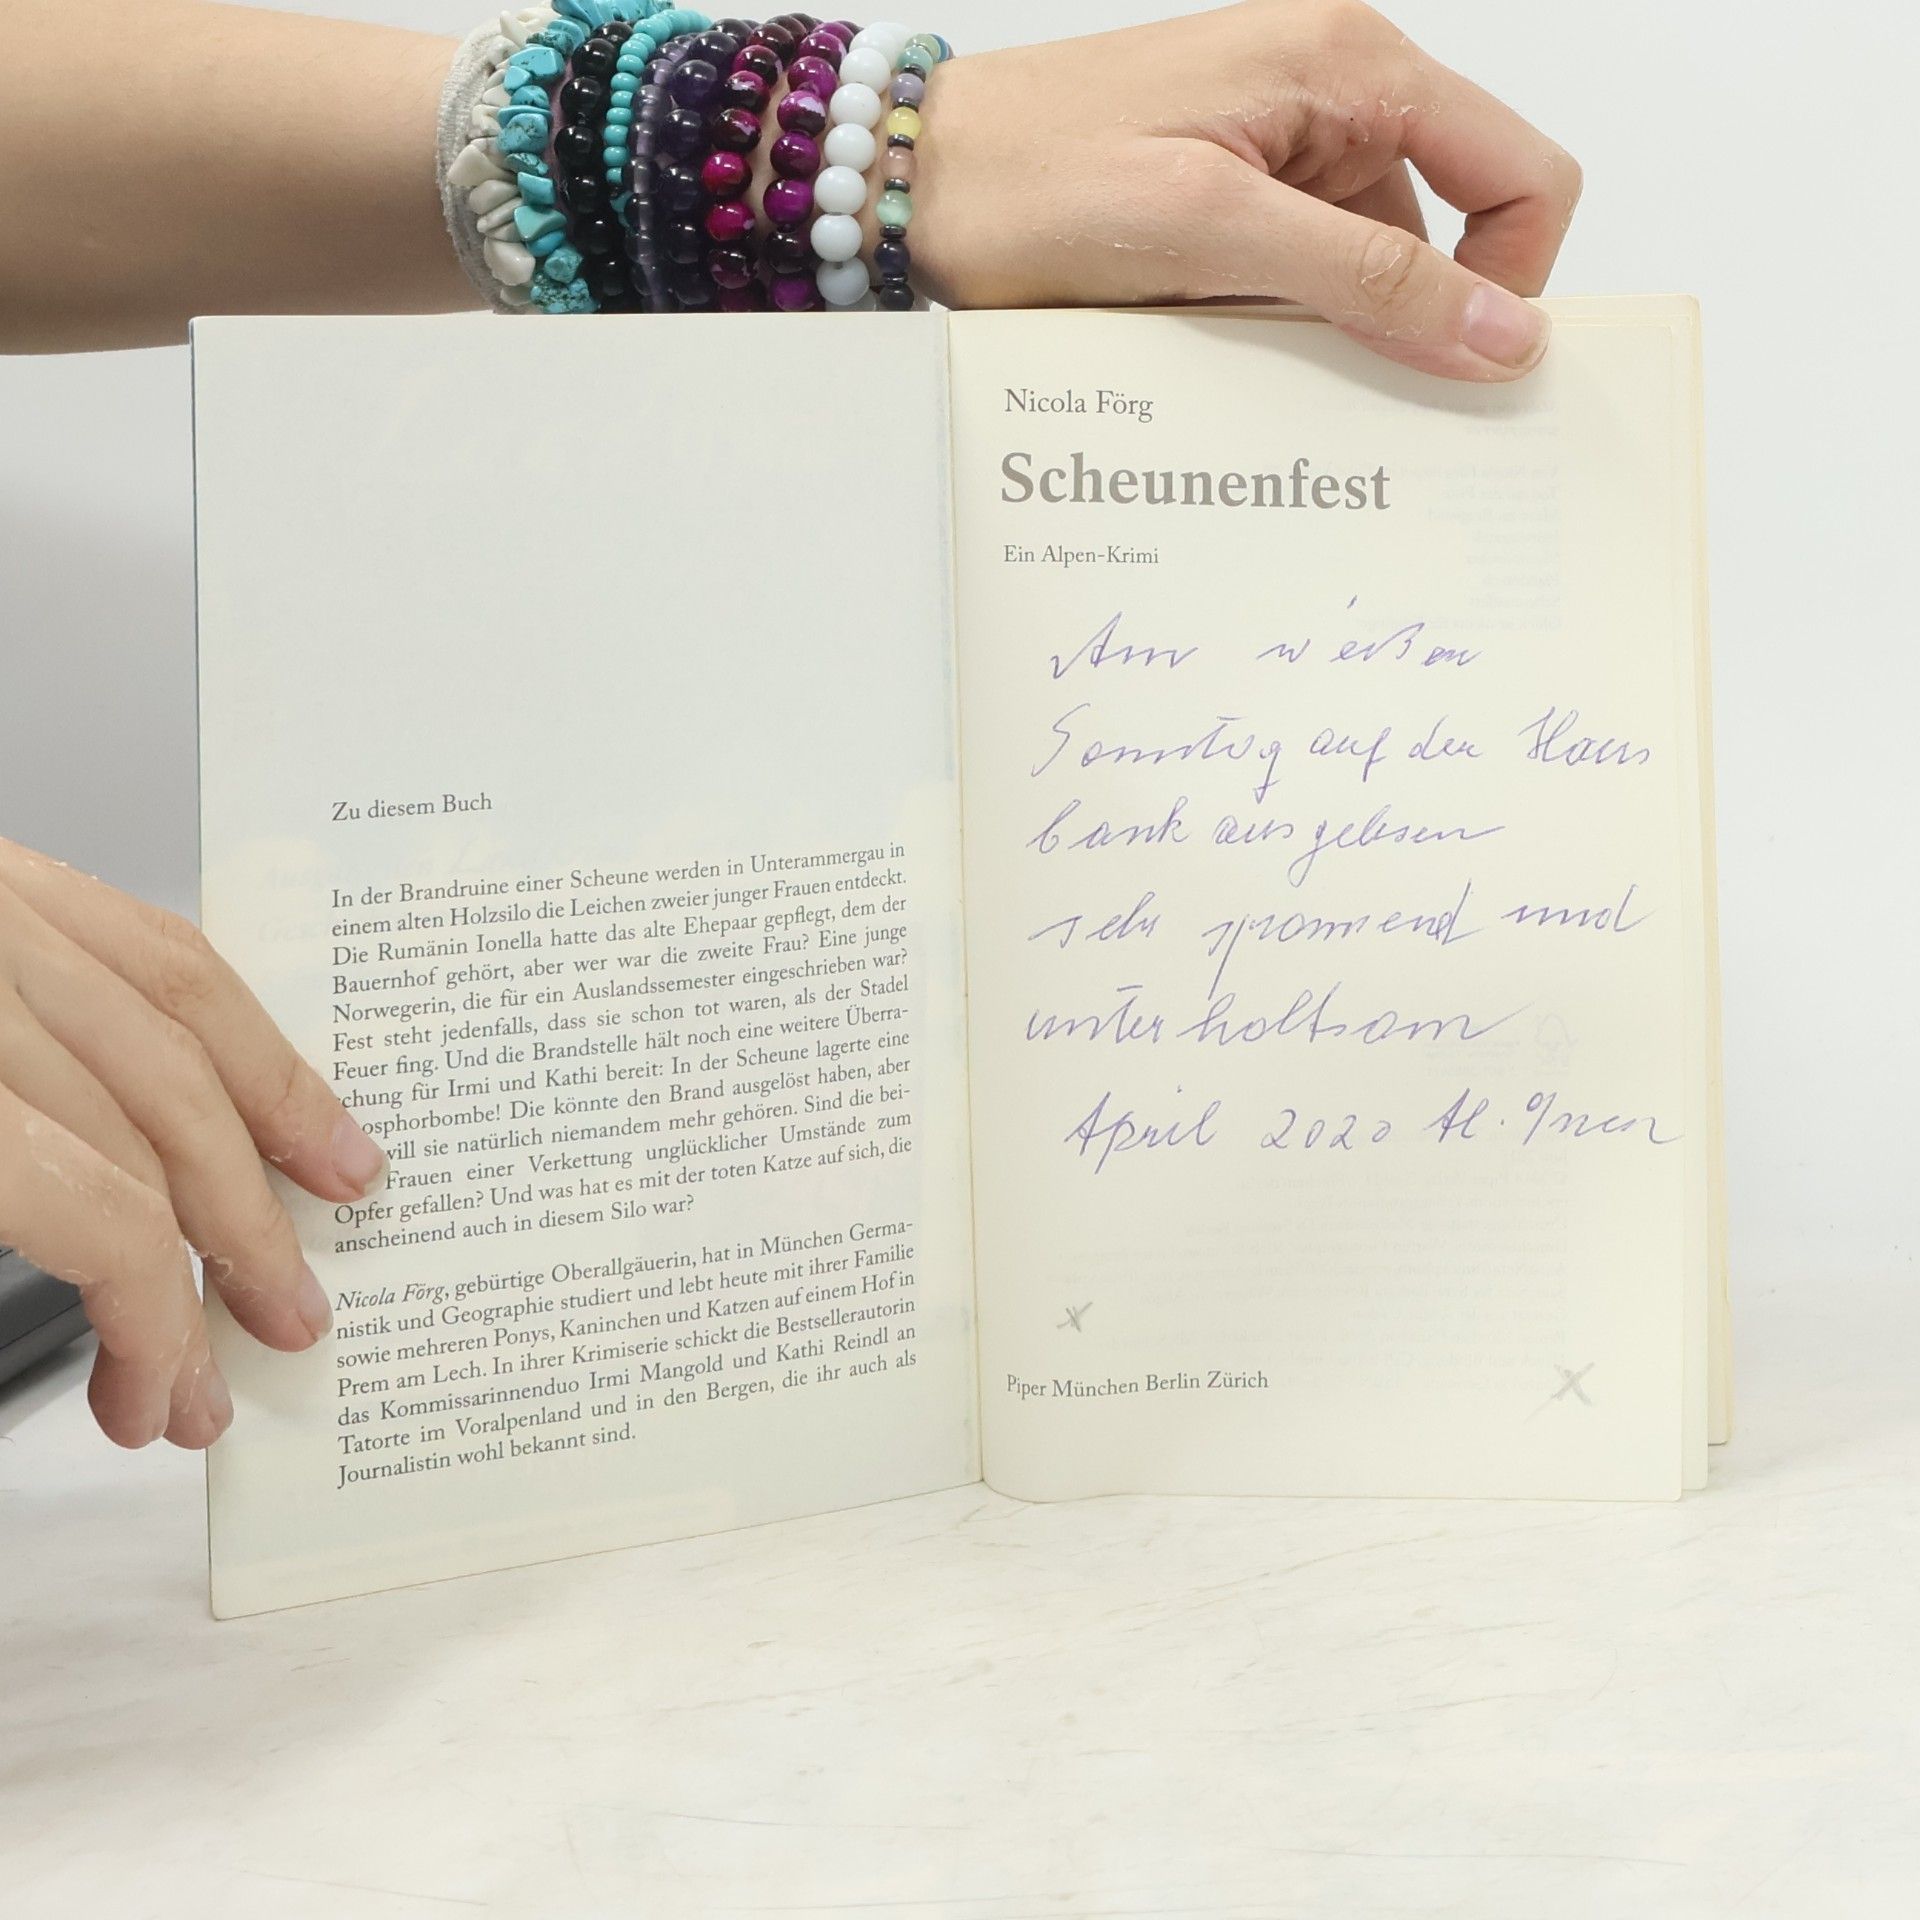 Zu diesem Buch
In der Brandruine einer Scheune werden in Unterammergau in
einem alten Holzsilo die Leichen zweier junger Frauen entdeckt.
Die Rumänin Ionella hatte das alte Ehepaar gepflegt, dem der
Bauernhof gehört, aber wer war die zweite Frau? Eine junge
Norwegerin, die für ein Auslandssemester eingeschrieben war?
Fest steht jedenfalls, dass sie schon tot waren, als der Stadel
Feuer fing. Und die Brandstelle hält noch eine weitere Überra-
chung für Irmi und Kathi bereit: In der Scheune lagerte eine
osphorbombe! Die könnte den Brand ausgelöst haben, aber
will sie natürlich niemandem mehr gehören. Sind die bei-
Frauen einer Verkettung unglücklicher Umstände zum
Opfer gefallen? Und was hat es mit der toten Katze auf sich, die
anscheinend auch in diesem Silo war?
Nicola Förg, gebürtige Oberallgäuerin, hat in München Germa-
nistik und Geographie studiert und lebt heute mit ihrer Familie
sowie mehreren Ponys, Kaninchen und Katzen auf einem Hof in
Prem am Lech. In ihrer Krimiserie schickt die Bestsellerautorin
das Kommissarinnenduo Irmi Mangold und Kathi Reindl an
Tatorte im Voralpenland und in den Bergen, die ihr auch als
Journalistin wohl bekannt sind.
Nicola Förg
Scheunenfest
Ein Alpen-Krimi
Am weißen
Sonntag auf der Haus
bank ausgelesen
sehr spannend und
unterhaltsam
April 2020
Piper München Berlin Zürich